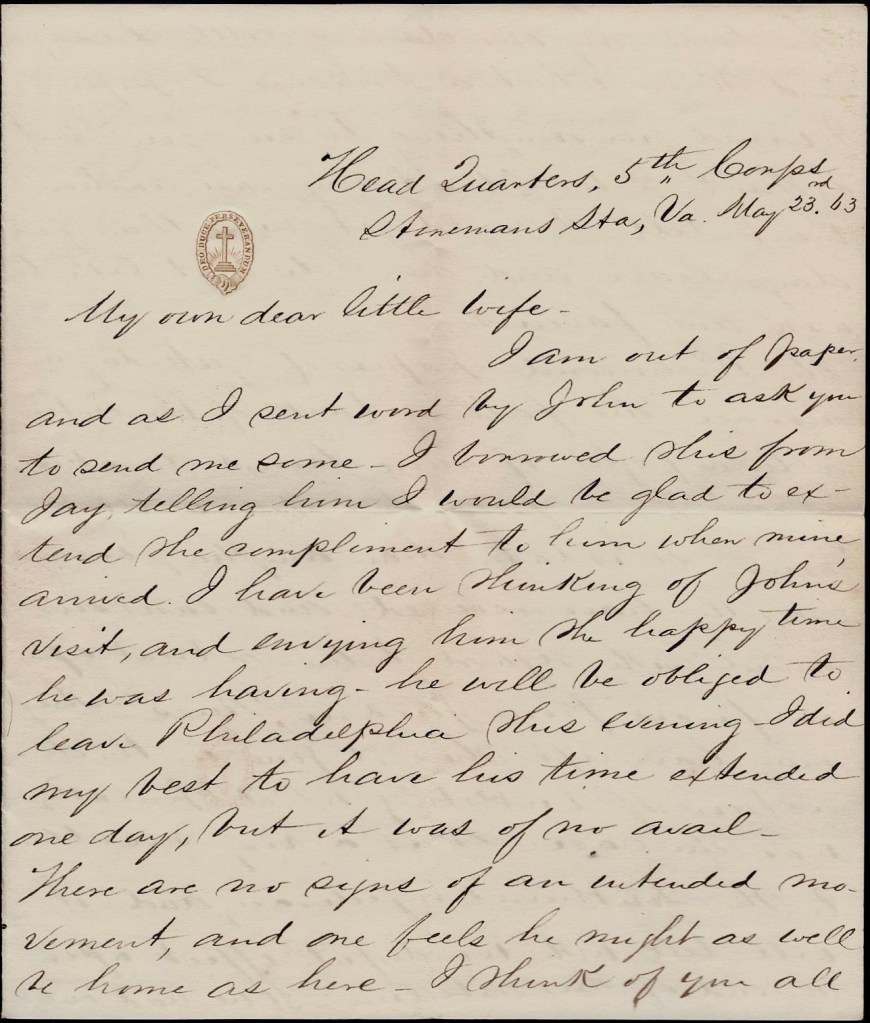 Head Quarters, 5th Corps
Stonemans Sta, Va. May 23.rd 63
DEO DUCE PERSEVERANDUM
My own dear little wife -
I am out of paper,
and as I sent word by John to ask you
to send me some - I borrowed this from
Jay, telling him I would be glad to ex-
tend the compliment to him when mine
arrived. I have been thinking of John's
visit, and envying him the happy time
he was having - he will be obliged to
leave Philadelphia this evening - I did
my best to have his time extended
one day, but it was of no avail -
There are no signs of an intended mo-
vement, and one feels he might as well
be home as here - I think of you all